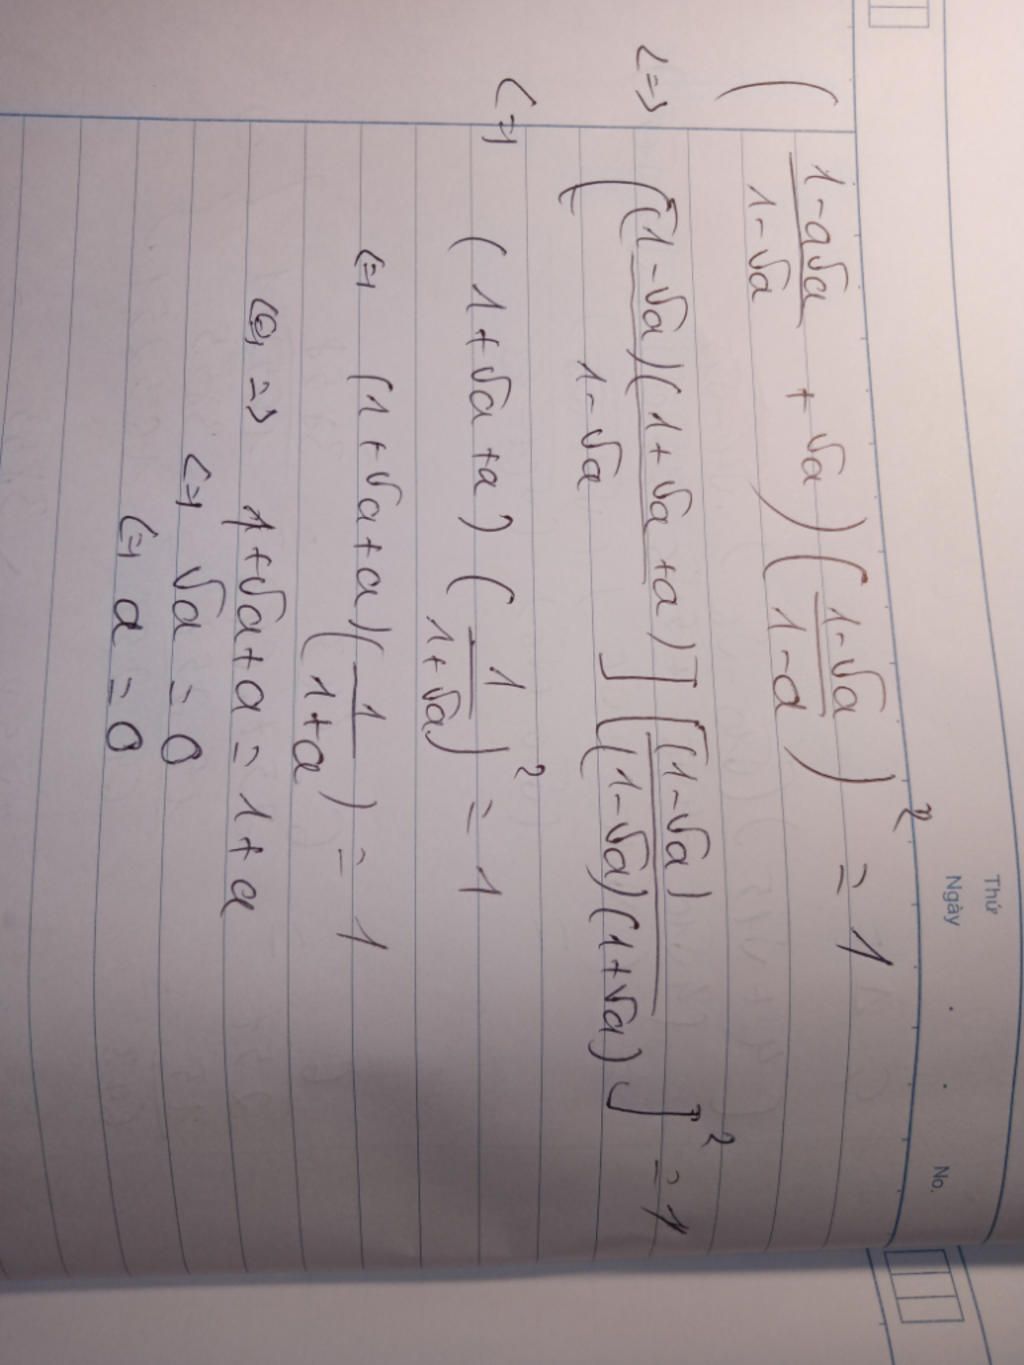 Thứ
Ngày . . No.
( (1-a√a)/(1-√a) + √a ) ( (1-√a)/(1-a) )² = 1
<=> [ (1-√a)(1+√a+a) / (1-√a) ] [ (1-√a) / (1-√a)(1+√a) ]² = 1
<=> (1+√a+a) ( 1/(1+√a) )² = 1
<=> (1+√a+a) ( 1/(1+a) ) = 1
=> 1+√a+a = 1+a
<=> √a = 0
<=> a = 0